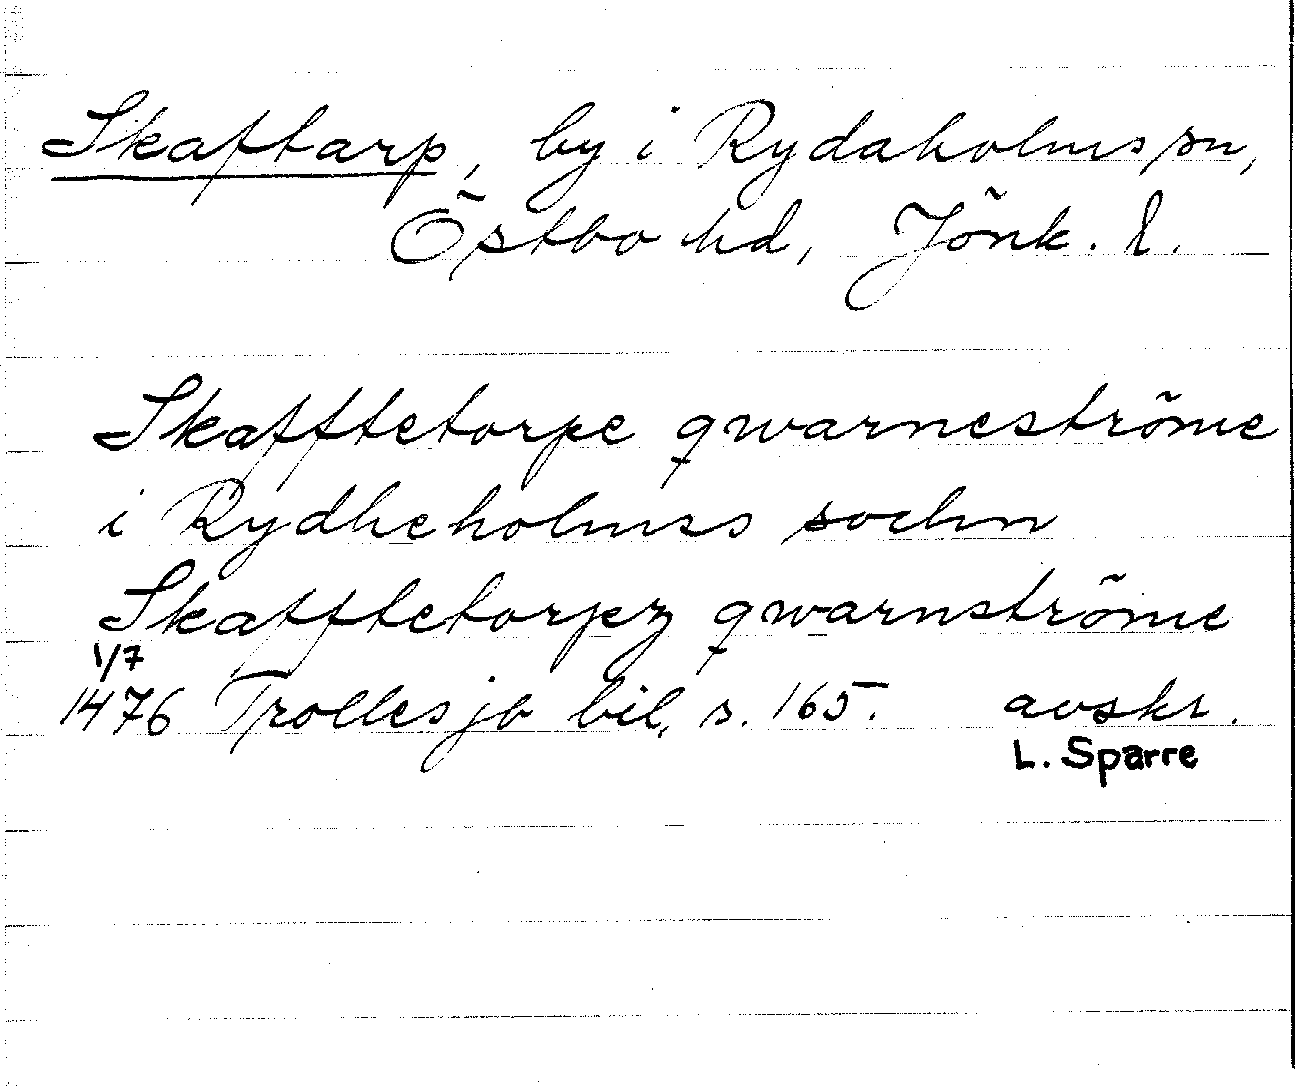 Skaftarp, by i Rydaholms sn,
Östbo hd, Jönk. l.
Skafftetorpe qwarneströme
i Rydheholmss sochn
Skafftetorpz qwarnströme
1/7
1476 Trolles jb bil, s. 165. avskr.
L. Sparre